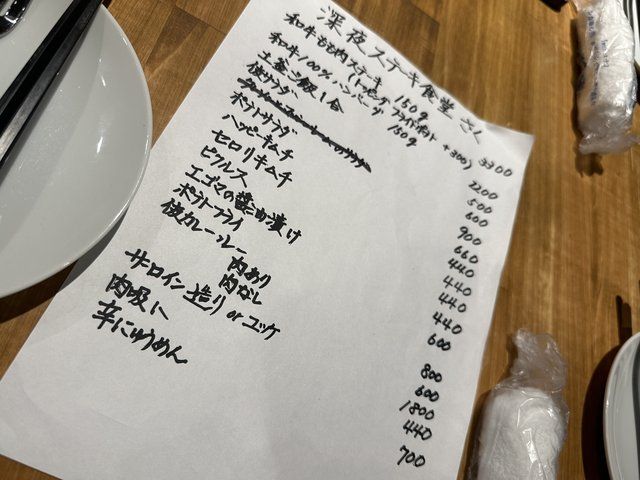 深夜ステキ食堂 さく
和牛もも肉ステーキ 150g 3300
(トッピング フライドポテト +300)
和牛100%ハンバーグ 150g 2200
土釜ご飯1合 500
俺サラダ 600
900
ポテトサラダ 660
ハッピーキムチ 440
セロリキムチ 440
ピクルス 440
エゴマの醤油漬け 440
ポテトフライ 600
俺カレールー 肉あり 800
肉なし 600
サーロイン造り or ユッケ 1800
肉吸い 440
辛にゅうめん 700